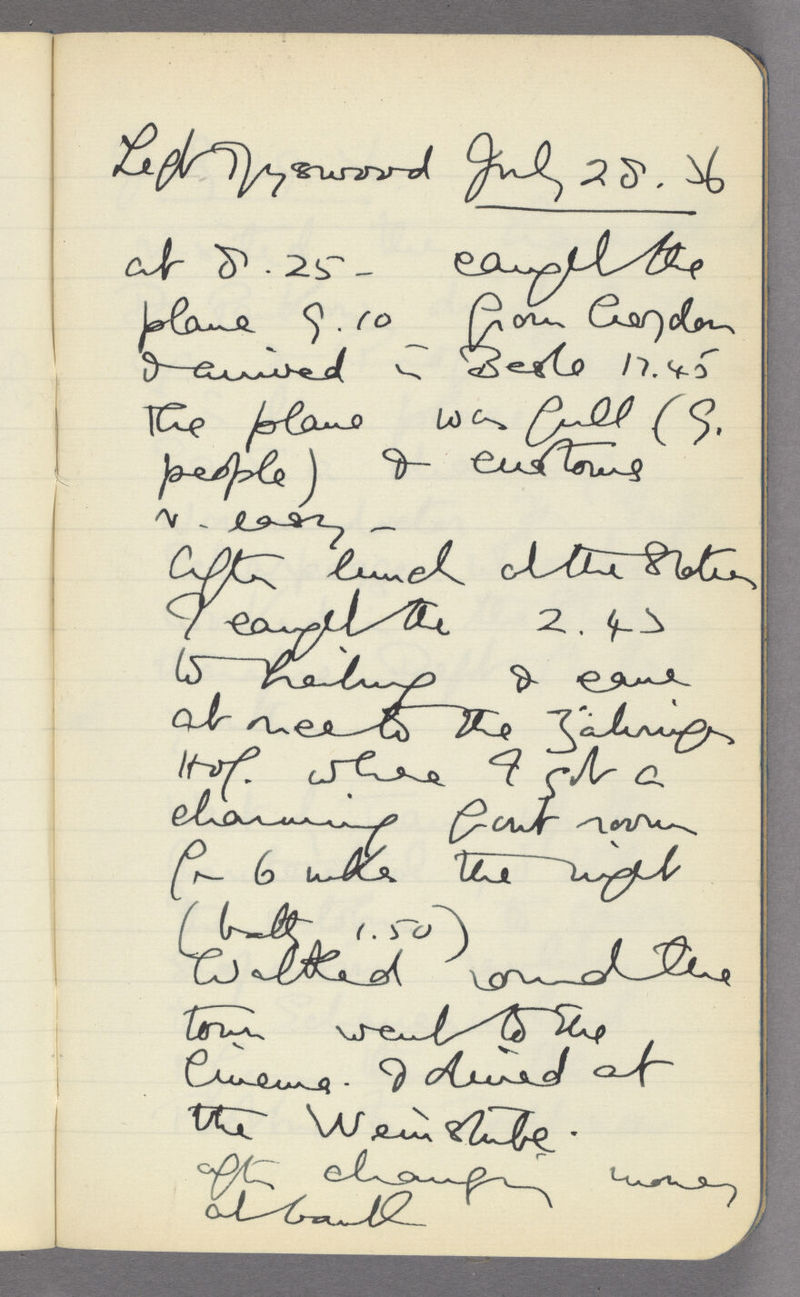 Left Tyswood July 28. 36
at 8.25 - caught the
plane 9.10 from Croydon
& arrived in Basle 12.45
the plane was full (9.
people) & customs
v. easy -
After lunch at the Station
I caught the 2.43
to Freiburg & came
at once to the Zähringer
Hof. where I got a
charming front room
for 6 mks the night
(bath 1.50)
Walked round the
town went to the
Cinema. & dined at
the Weinstube.
after changing money
at bank